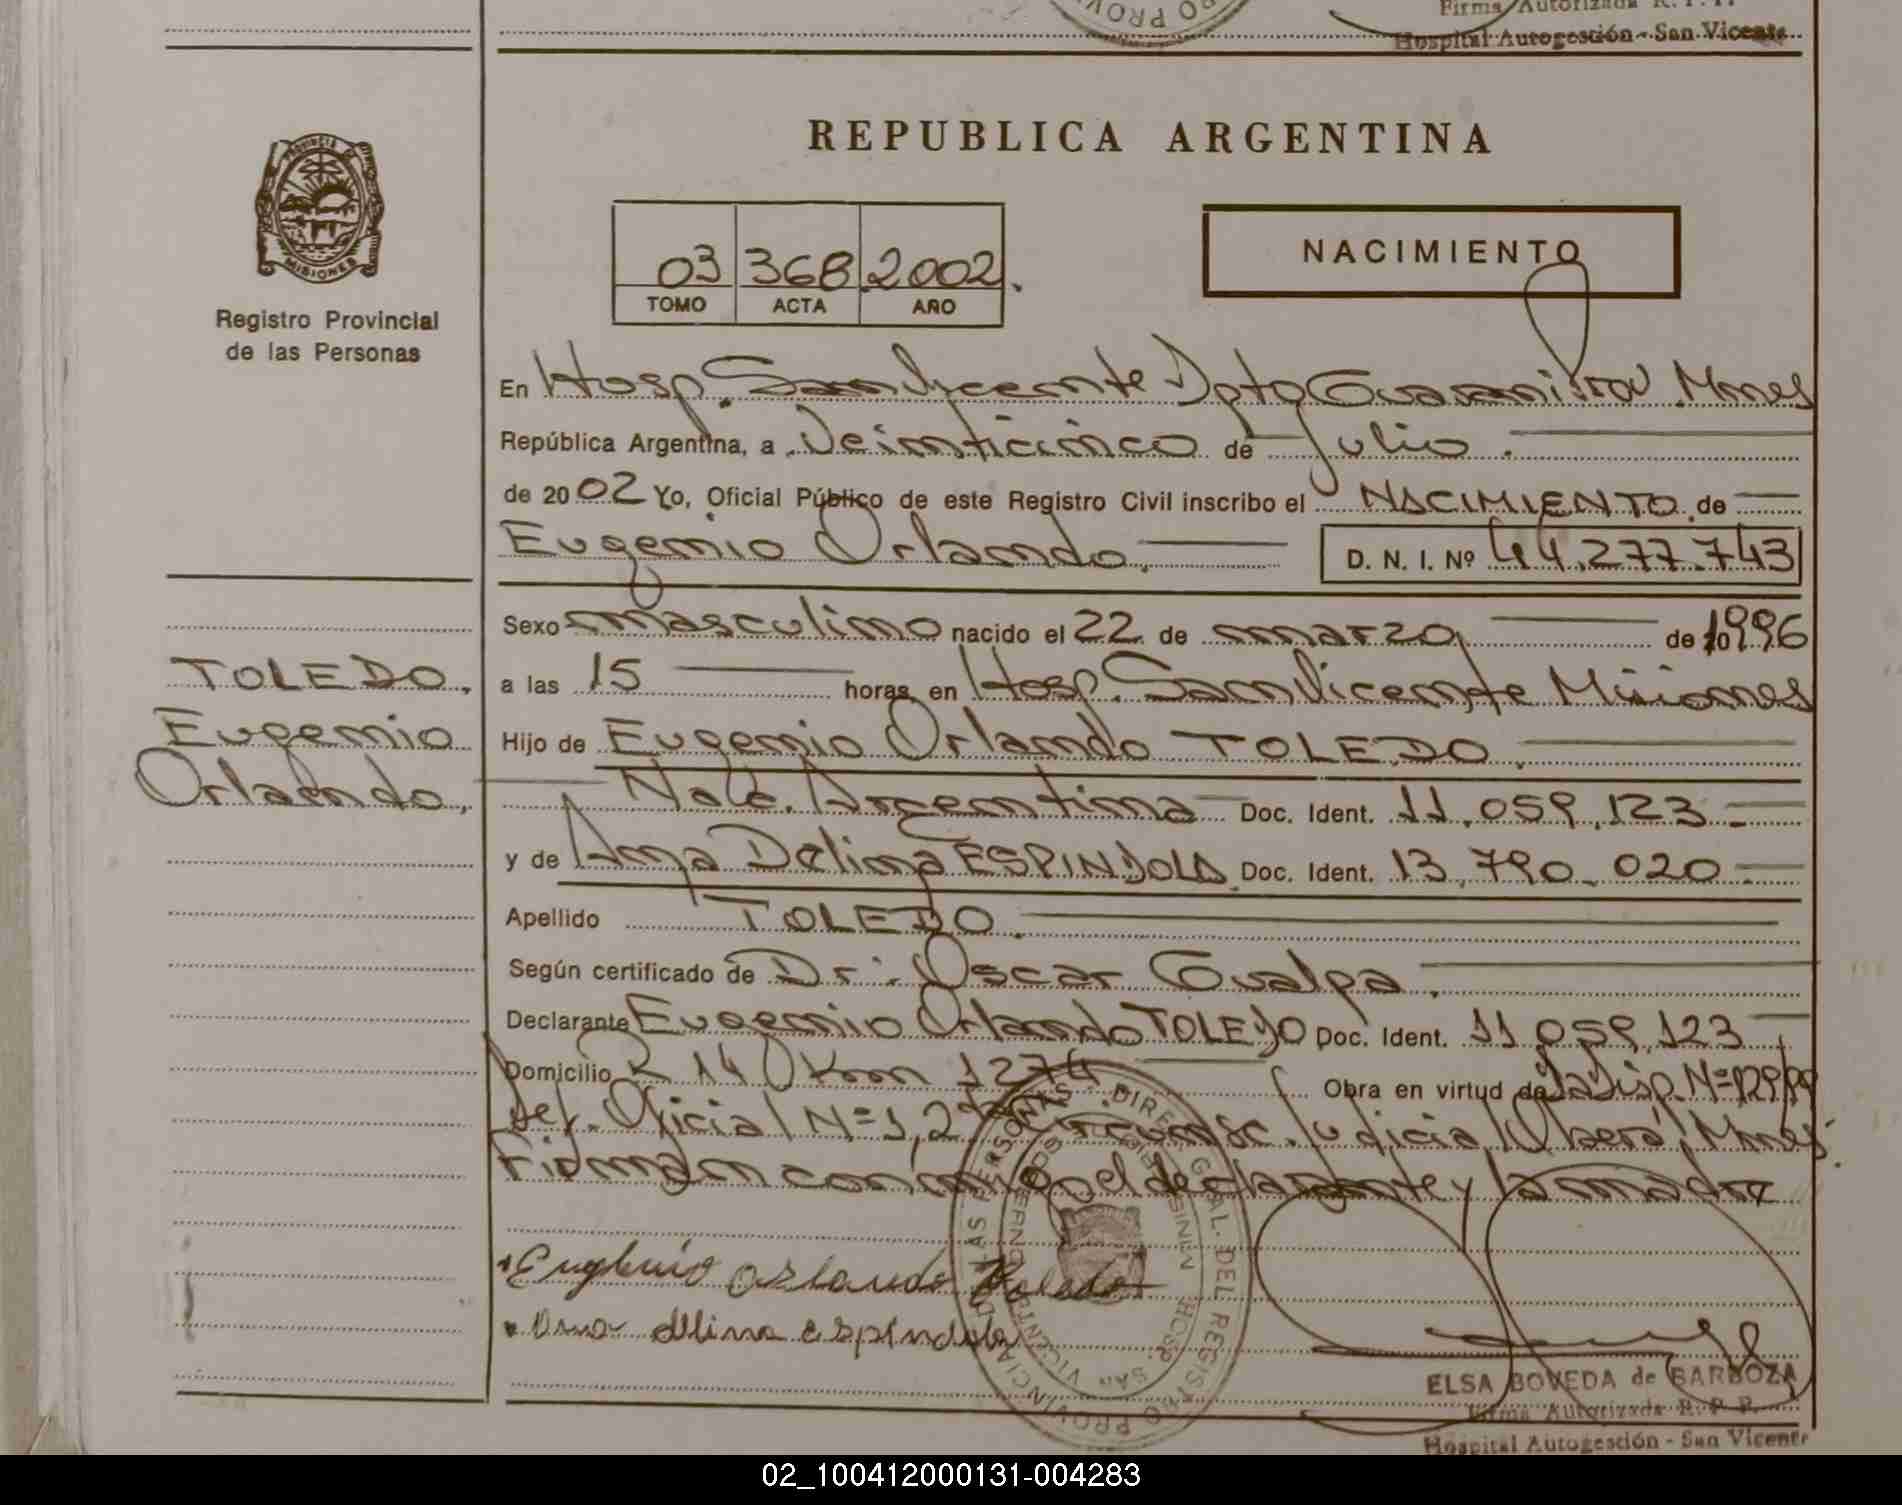 Firma Autorizada R. P. P.
Hospital Autogestión - San Vicente
REPUBLICA ARGENTINA
PROVINCIA DE
MISIONES
Registro Provincial
de las Personas
03 368 2002.
TOMO ACTA AÑO
NACIMIENTO
En Hosp. San Vicente Dpto Guaraní Prov Mnes
República Argentina, a Veinticinco de Julio.
de 2002 Yo, Oficial Público de este Registro Civil inscribo el NACIMIENTO de
Eugenio Orlando. D. N. I. Nº 44.277.743
Sexo masculino nacido el 22 de marzo de 1996
a las 15 horas, en Hosp. San Vicente Misiones
Hijo de Eugenio Orlando TOLEDO.
Nac. Argentina Doc. Ident. 11.059.123
y de Ana Delima ESPINDOLA Doc. Ident. 13.790.020
Apellido TOLEDO.
Según certificado de Dr. Oscar Gualpa.
Declarante Eugenio Orlando TOLEDO Doc. Ident. 11.059.123
Domicilio R 14 Km 1274 Obra en virtud de la Disp. Nº 129/99
Def. Oficial Nº 1, 2ª Circunsc. Judicial Oberá, Mnes.
Firman conmigo el declarante y la madre
Eugenio Orlando Toledo
Ana delima espindola
TOLEDO,
Eugenio
Orlando,
DIREC. GRAL. DEL REGISTRO PROVINCIAL DE LAS PERSONAS
HOSP. SAN VICENTE
ELSA BOVEDA de BARBOZA
Firma Autorizada R. P. P.
Hospital Autogestión - San Vicente
02_100412000131-004283